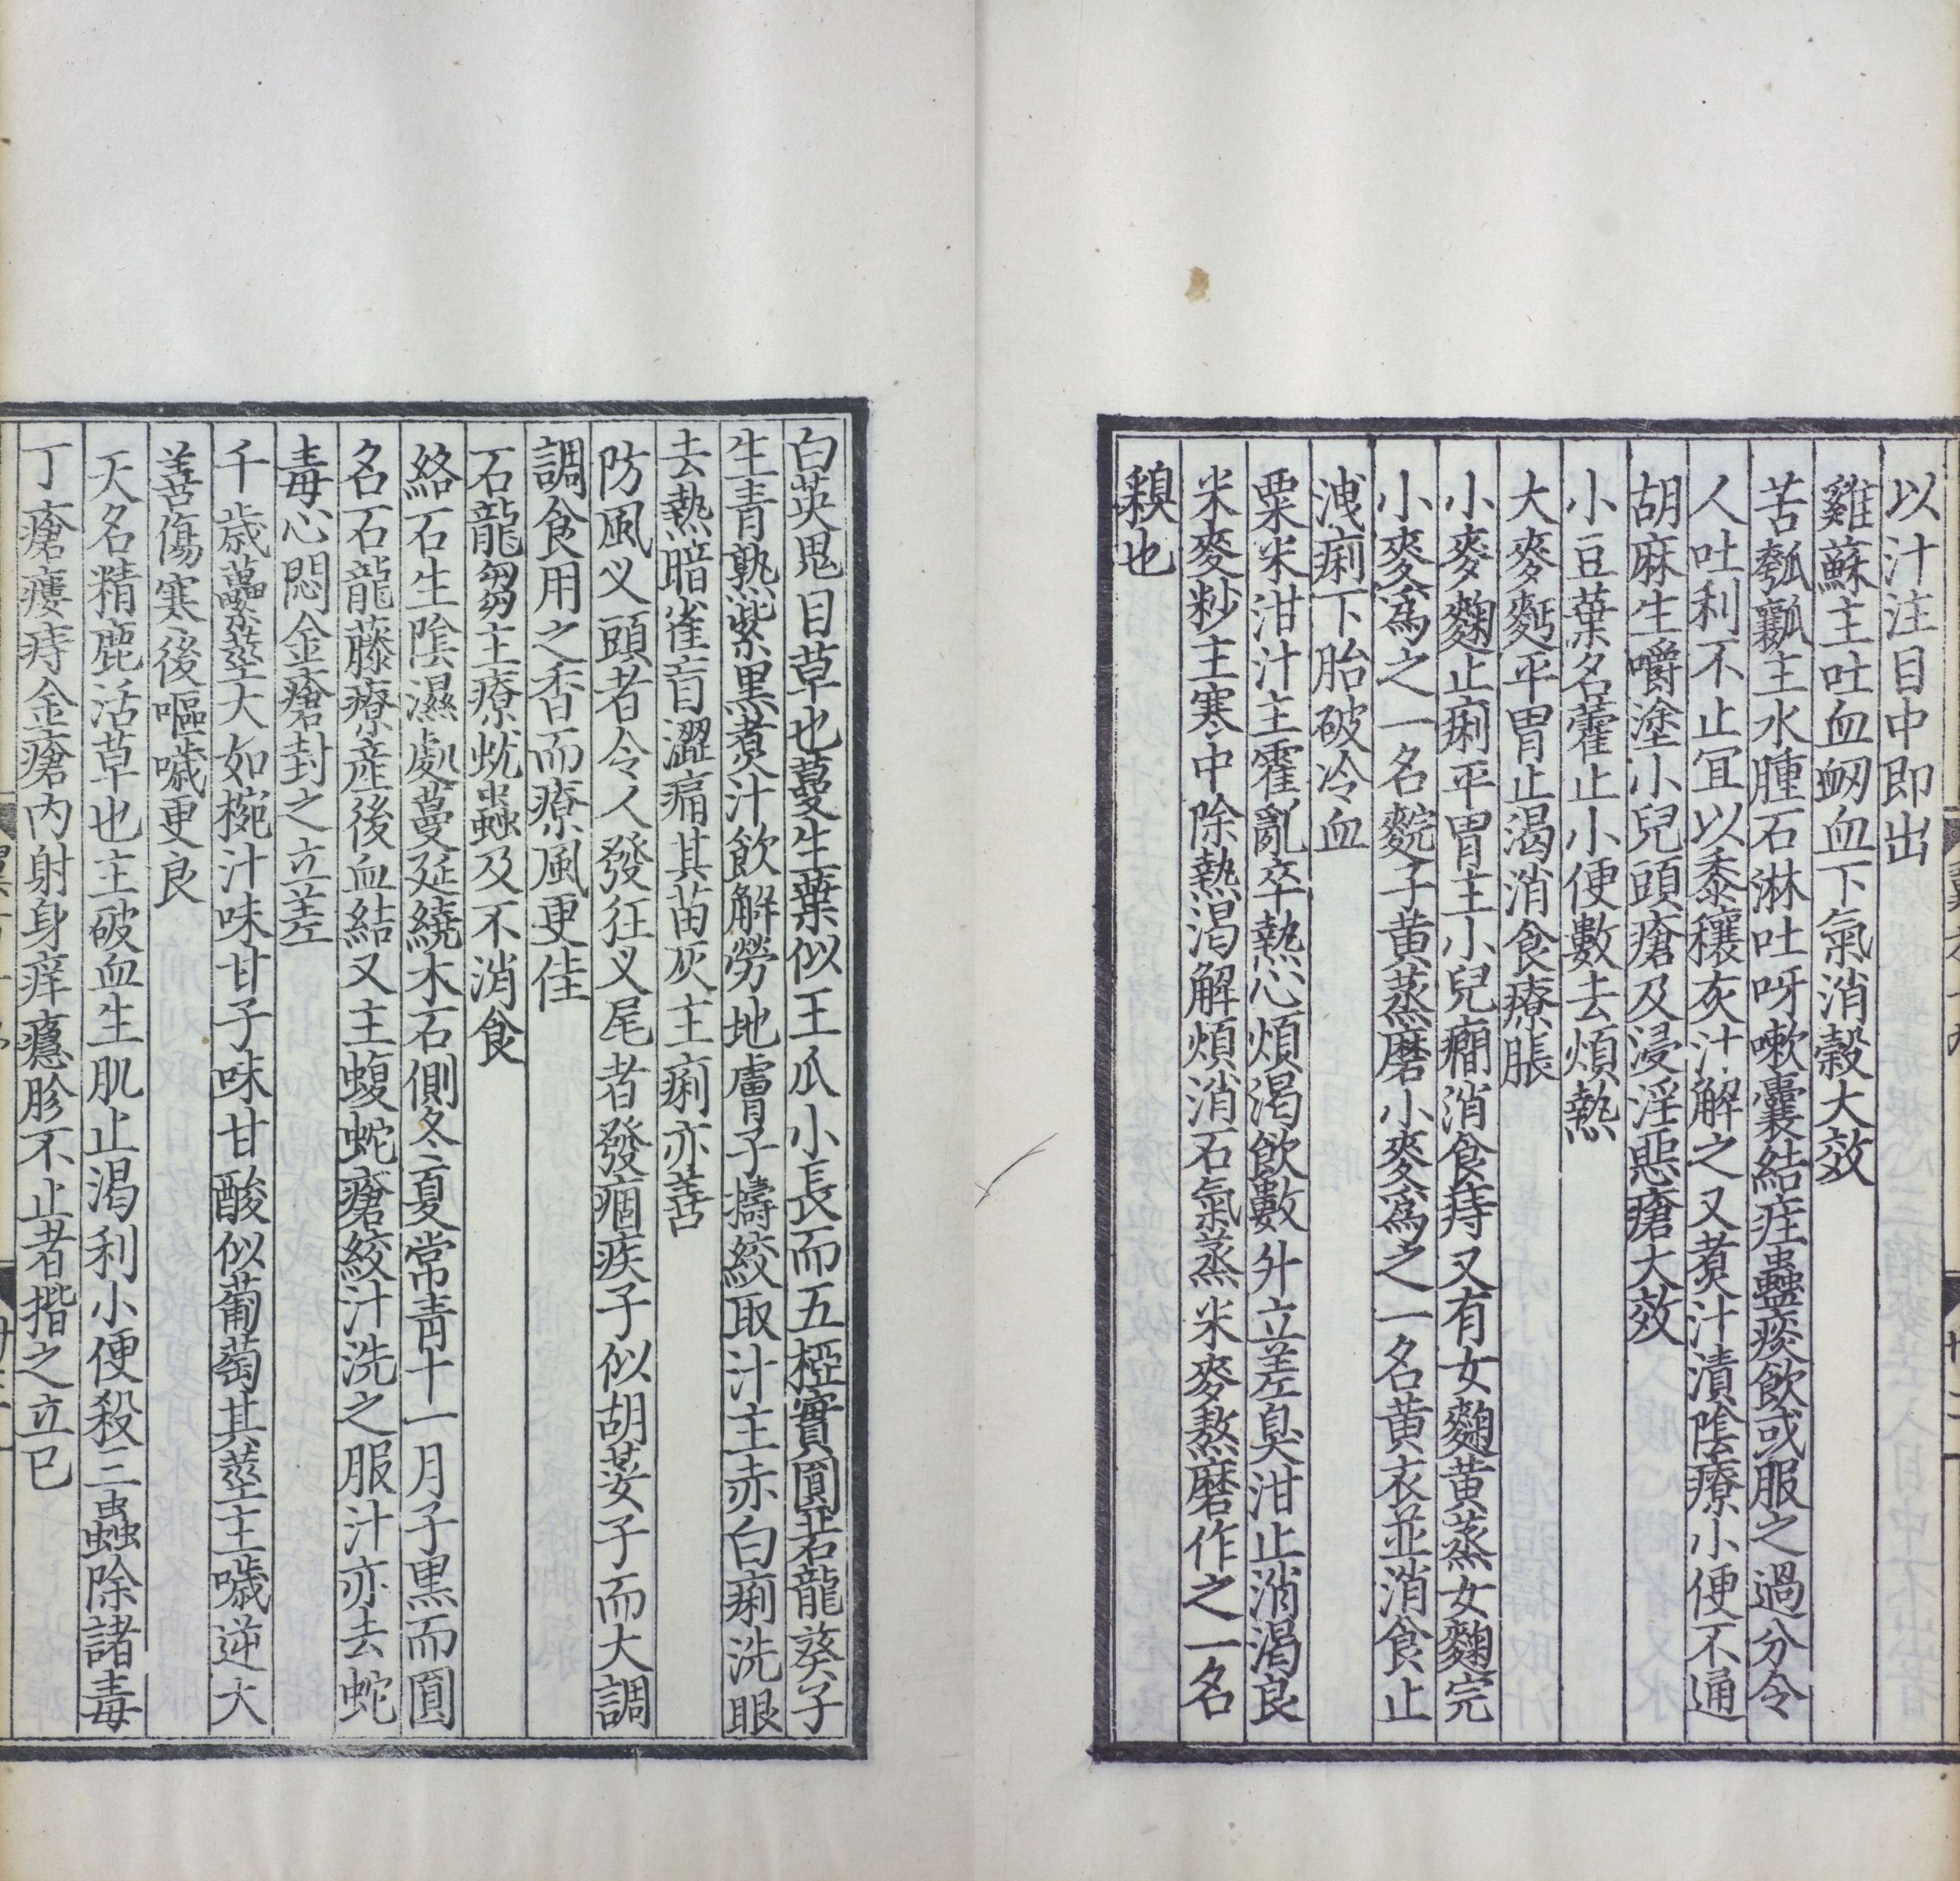 以汁注目中即出
雞蘇主吐血衂血下氣消穀大效
苦瓠瓤主水腫石淋吐呀嗽囊結疰蠱痰飲或服之過分令
人吐利不止宜以黍穰灰汁解之又煑汁漬陰療小便不通
胡麻生嚼塗小兒頭瘡及浸淫惡瘡大效
小豆葉名藿止小便數去煩熱
大麥麪平胃止渴消食療脹
小麥麴止痢平胃主小兒癎消食痔又有女麴黄蒸女麴完
小麥爲之一名䴷子黄蒸磨小麥爲之一名黄衣並消食止
洩痢下胎破冷血
粟米泔汁主霍亂卒熱心煩渴飲數升立差臭泔止消渴良
米麥麨主寒中除熱渴解煩消石氣蒸米麥熬磨作之一名
糗也
白英鬼目草也蔓生葉似王瓜小長而五椏實圓若龍葵子
生青熟紫黑煑汁飲解勞地膚子擣絞取汁主赤白痢洗眼
去熱暗雀盲澀痛其苗灰主痢亦善
防風义頭者令人發狂义尾者發痼疾子似胡荽子而大調
調食用之香而療風更佳
石龍芻主療蚘蟲及不消食
絡石生陰濕處蔓延繞木石側冬夏常青十一月子黒而圓
名石龍藤療産後血結又主蝮蛇瘡絞汁洗之服汁亦去蛇
毒心悶金瘡封之立差
千歳虆莖大如椀汁味甘子味甘酸似葡萄其莖主噦逆大
善傷寒後嘔噦更良
天名精鹿活草也主破血生肌止渴利小便殺三蟲除諸毒
丁瘡瘻痔金瘡内射身痒癮胗不止者揩之立已